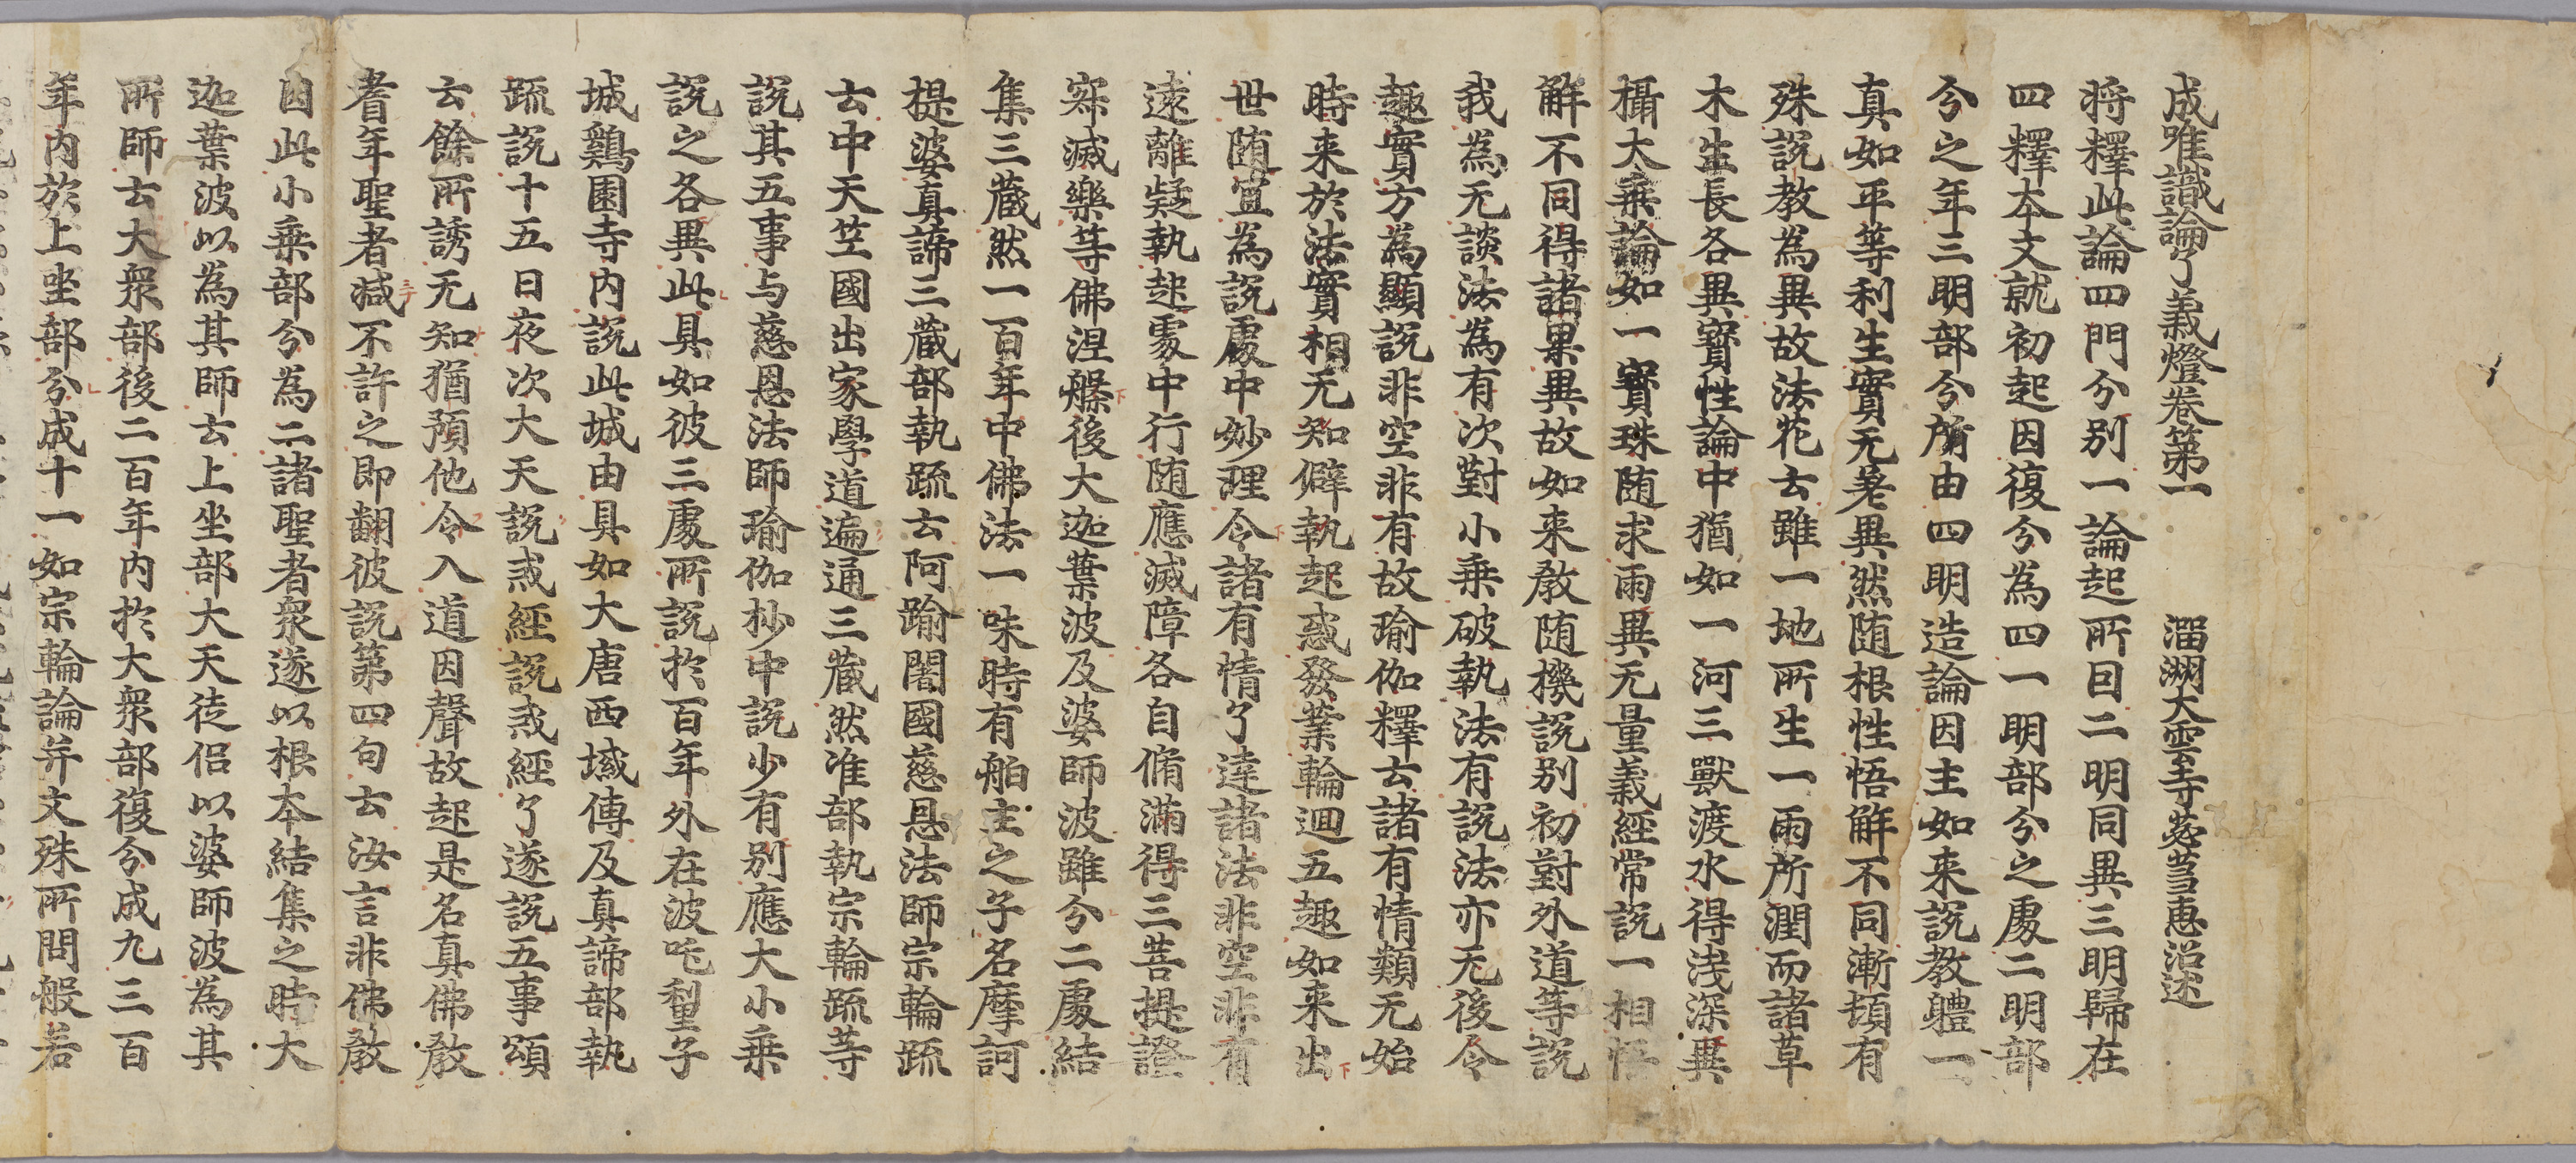 成唯識論了義燈卷第一　淄洲大雲寺苾蒭惠沼述
將釋此論四門分別一論起所因二明同異三明歸在
四釋本文就初起因復分為四一明部分之處二明部
分之年三明部分所由四明造論因主如来說教軆一
真如平等利生實无差異然随根性悟解不同漸頓有
殊說教為異故法花云雖一地所生一雨所潤而諸草
木生長各異寳性論中猶如一河三獸渡水得浅深異
攝大乗論如一寳珠随求雨異无量義經常說一相悟
解不同得諸果異故如来教随機說别初對外道等說
我為无談法為有次對小乗破執法有說法亦无後令
趣實方為顯說非空非有故瑜伽釋云諸有情類无始
時来於法實相无知僻執起惑發業輪迴五趣如来出
世随宜為說處中妙理令諸有情了達諸法非空非有
遠離疑執起處中行随應滅障各自脩滿得三菩提證
寂滅樂等佛涅槃後大迦葉波及婆師波雖分二處結
集三藏然一百年中佛法一味時有舶主之子名摩訶
提婆真諦三藏部執疏云阿踰闍國慈恩法師宗輪疏
云中天笁國出家學道遍通三藏然准部執宗輪疏等
說其五事与慈恩法師瑜伽抄中說少有别應大小乗
說之各異此具如彼三處所說於百年外在波吒梨子
城鷄園寺内說此城由具如大唐西域傳及真諦部執
疏說十五日夜次大天說戒經說戒經了遂說五事頌
云餘所誘无知猶預他令入道因聲故起是名真佛教
耆年聖者減不許之即翻彼說第四句云汝言非佛教
因此小乗部分為二諸聖者衆遂以根本結集之時大
迦葉波以為其師云上坐部大天徒侣以婆師波為其
所師云大衆部後二百年内於大衆部復分成九三百
年内於上坐部分成十一如宗輪論并文殊所問般若